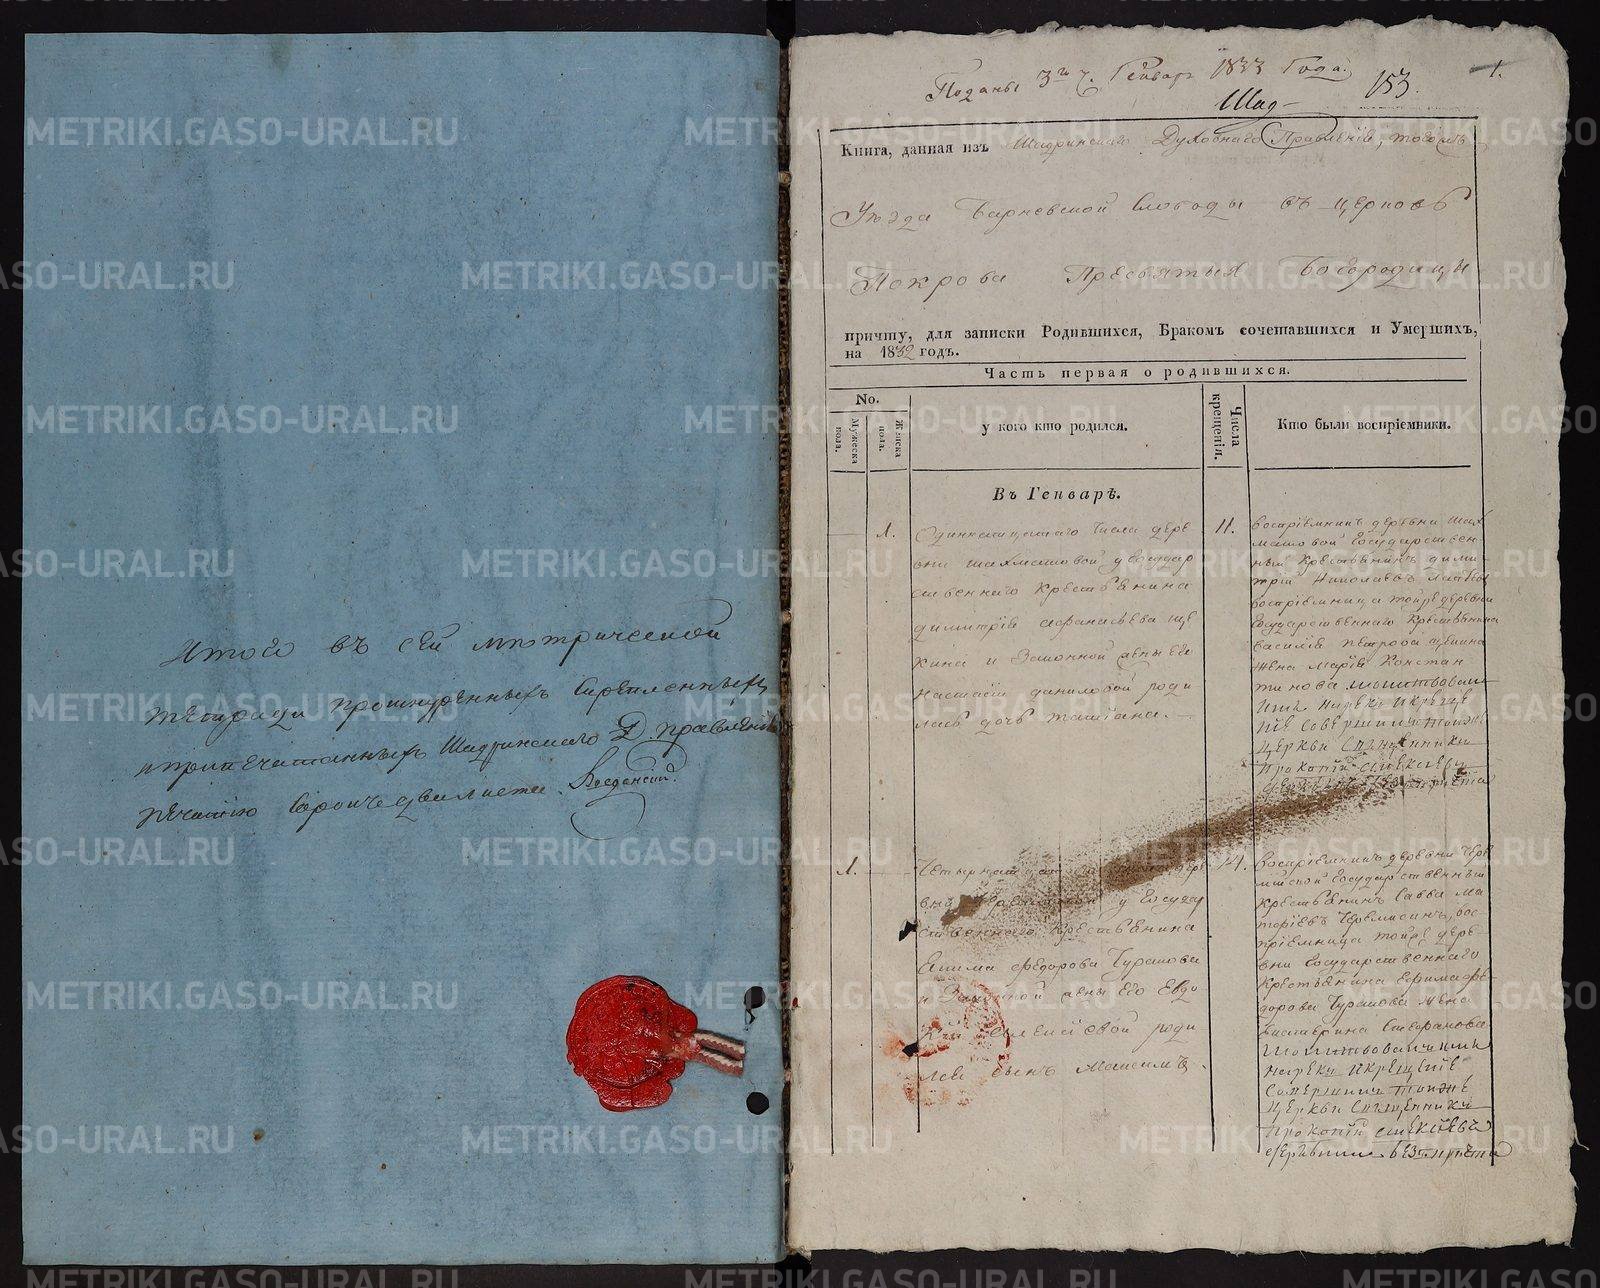 Итого въ сей метрической
тетради прошнуренныхъ скрепленныхъ
и припечатанныхъ Шадринскаго Д. правленія
печатію сорокъ два листа.
Поданы 3го ч. Генваря 1833 Года.
Шад-
153.
1.
Книга, данная изъ Шадринскаго Духовнаго Правленія, тогожъ
Уезда Барневской Слободы въ церковь
Покрова Пресвятыя Богородицы
причту, для записки Родившихся, Бракомъ сочетавшихся и Умершихъ,
на 1832 годъ.
Часть первая о родившихся.
No.
Мужеска пола.
Женска пола.
у кого кто родился.
Числа крещенія.
Кто были воспріемники.
Въ Генварѣ.
1.
Одиннацатаго числа дере
вни Шахматовой у государ
ственнаго крестьянина
Димитрія Афанасьева Ще
кина и законной жены его
Настасіи Даниловой роди
лась дочь Татіана.
11.
Воспріемникъ деревни Шах
матовой Государствен
ный крестьянинъ Дими
трій Николаевъ
воспріемница тойже деревни
Государственнаго крестьянина
Василія Петрова Щекина
жена Марія Констан
тинова молитвовалъ
имя нарекъ и креще
ніе совершилъ тояже
церкви Священникъ
Прокопій Алексіевъ
1.
деревни у Государ
ственнаго крестьянина
Екима Федорова Чуракова
и законной жены его Евдо
Алексіевой роди
лся сынъ Максимъ.
14.
Воспріемникъ деревни Чере
миской Государственный
крестьянинъ Савва Ма
Черемисинъ, вос
пріемница тойже дере
вни Государственнаго
крестьянина Ефима Фе
дорова Чуракова жена
Екатерина Стефанова
молитвовалъ имя
нарекъ и крещеніе
совершилъ тояже
церкви Священникъ
Прокопій Алексіевъ
безъ причта